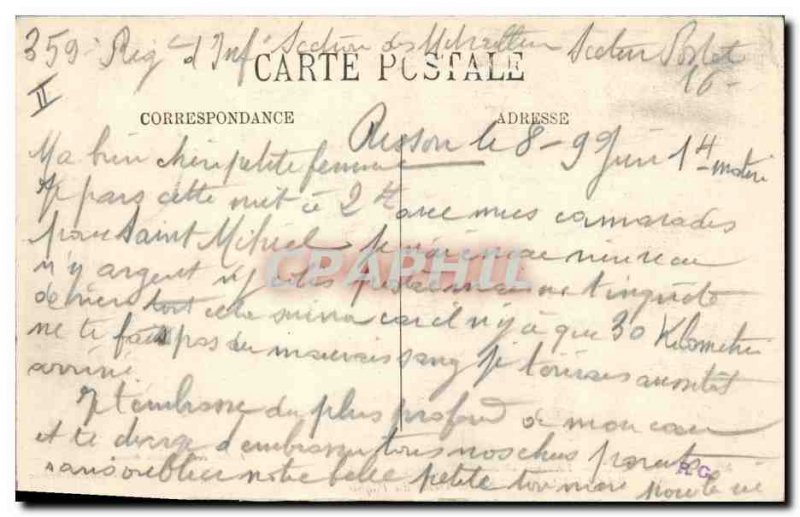 359e Regt d'Infie Section des Mitrailleurs Secteur Postal
16
II
CARTE POSTALE
CORRESPONDANCE ADRESSE
le 8-9 Juin 14 matin
Ma bien chérie petite femme
Je pars cette nuit à 2 H avec mes camarades
pour Saint Mihiel je n'ai encore ni
n'y argent n'y colis ne t'inquète
tout cela suivra car il n'y a que 30 Kilometres
ne te fais pas du mauvais sang je t'écrirais aussitôt
arrivé
Je t'embrasse du plus profond de mon cœur
et te d'embrasser tous nos chers parents
sans oublier notre belle petite ton mari pour la vie
CPAPHIL
R.G.